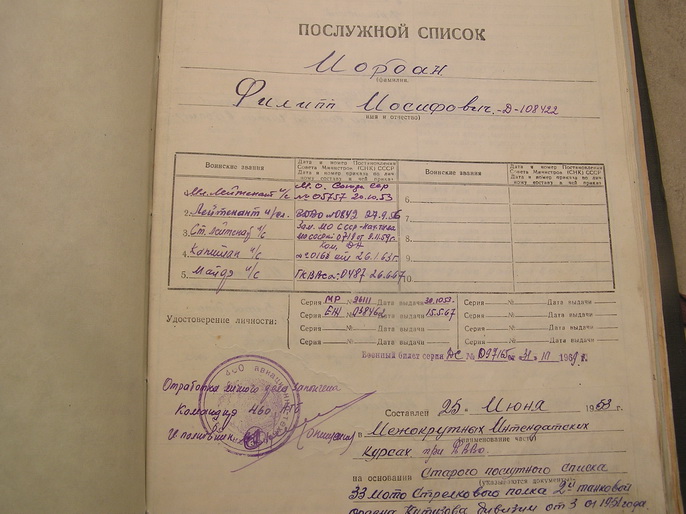 ПОСЛУЖНОЙ СПИСОК
(фамилия)
Филипп Иосифович. -Д-108422
имя и отчество)
Воинские звания
Дата и номер Постановления Совета Министров (СНК) СССР Дата и номер приказа по личному составу и чей приказ
Воинские звания
Дата и номер Постановления Совета Министров (СНК) СССР Дата и номер приказа по личному составу и чей приказ
1. Мл. Лейтенант и/с М.О. Союза ССР № 05757 20.10.53
6.
2. Лейтенант и/с. №0842 27.9.56
7.
3. Ст. Лейтенант и/с Зам. МО СССР
8.
4. Капитан и/с №0166 26.1.63г.
9.
5. Майор и/с 0487 26.6.67
10.
Удостоверение личности:
Серия МР № 26111 Дата выдачи 30.10.53. Серия № Дата выдачи
Серия ЕЖ № 038462 Дата выдачи 15.5.67 Серия № Дата выдачи
Серия № Дата выдачи Серия № Дата выдачи
Серия № Дата выдачи Серия № Дата выдачи
Военный билет серия АС № 31 III 1969 г.
Отработка личного дела закончена
Командир 460
Составлен 25 Июня 1953 г.
в Межокружных Интендатских
(наименование части)
Курсах при
на основании Старого послутного списка
(указываются документы)
33 Мото Стрелкового полка 2й танковой
ордена Кутузова дивизии от 3 01 1951 года.